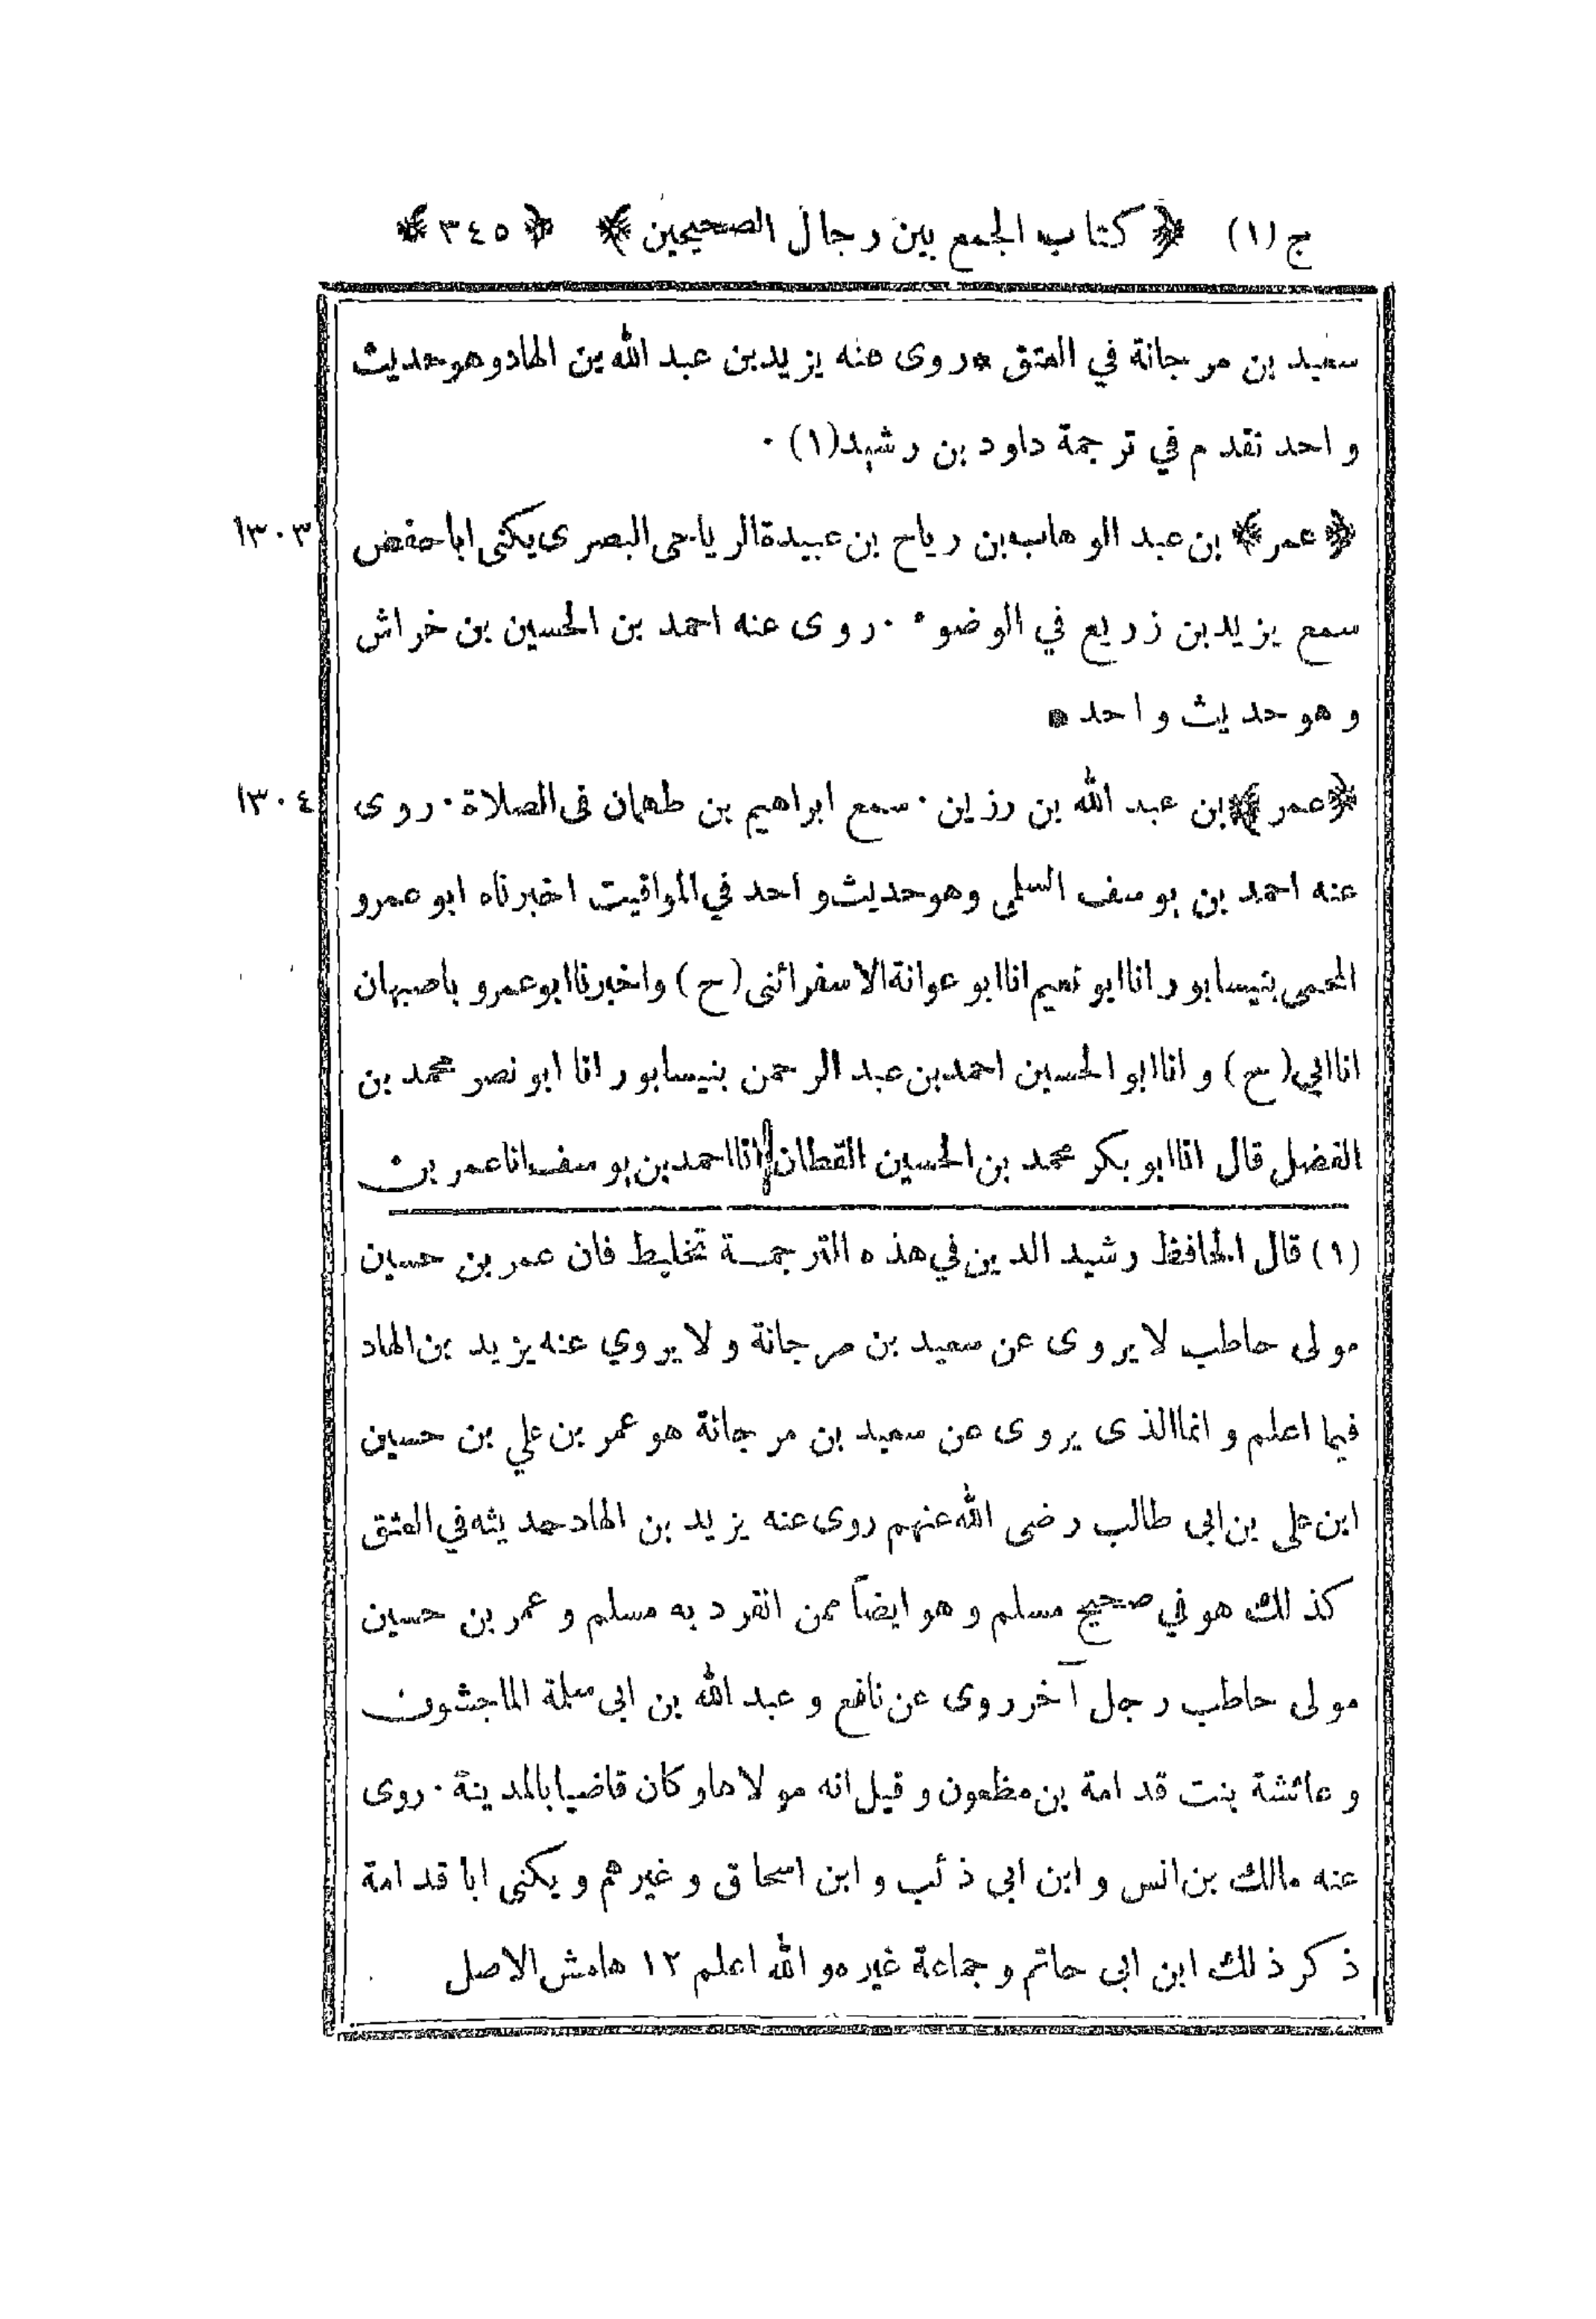 ج (١) ﴿ كتاب الجمع بين رجال الصحيحين ﴾ ﴿ ٣٤٥ ﴾
سعيد بن مرجانة في العتق * روى عنه يزيد بن عبد الله بن الهاد وهو حديث
واحد تقدم في ترجمة داود بن رشيد (١) ·
١٣٠٣ ﴿ عمر ﴾ بن عبد الوهاب بن رياح بن عبيدة الرياحى البصرى يكنى ابا حفص
سمع يزيد بن زريع في الوضوء · روى عنه احمد بن الحسين بن خراش
وهو حديث واحد *
١٣٠٤ ﴿ عمر ﴾ بن عبد الله بن رزين · سمع ابراهيم بن طهمان فى الصلاة · روى
عنه احمد بن يوسف السلمى وهو حديث واحد في المواقيت اخبرناه ابو عمرو
المحمى بنيسابور انا ابو نعيم انا ابو عوانة الاسفرائنى (ح) واخبرنا ابو عمرو باصبهان
انا ابي (ح) وانا ابو الحسين احمد بن عبد الرحمن بنيسابور انا ابو نصر محمد بن
الفضل قال انا ابو بكر محمد بن الحسين القطان انا احمد بن يوسف انا عمر بن
(١) قال الحافظ رشيد الدين في هذه الترجمة تخليط فان عمر بن حسين
مولى حاطب لا يروى عن سعيد بن مرجانة ولا يروي عنه يزيد بن الهاد
فيما اعلم وانما الذى يروى عن سعيد بن مرجانة هو عمر بن علي بن حسين
ابن على بن ابى طالب رضى الله عنهم روى عنه يزيد بن الهاد حديثه في العتق
كذلك هو في صحيح مسلم وهو ايضاً ممن انفرد به مسلم وعمر بن حسين
مولى حاطب رجل آخر روى عن نافع وعبد الله بن ابى سلمة الماجشون
وعائشة بنت قدامة بن مظعون وقيل انه مولاها وكان قاضيا بالمدينة · روى
عنه مالك بن انس وابن ابى ذئب وابن اسحاق وغيرهم ويكنى ابا قدامة
ذكر ذلك ابن ابى حاتم وجماعة غيره والله اعلم ١٢ هامش الاصل